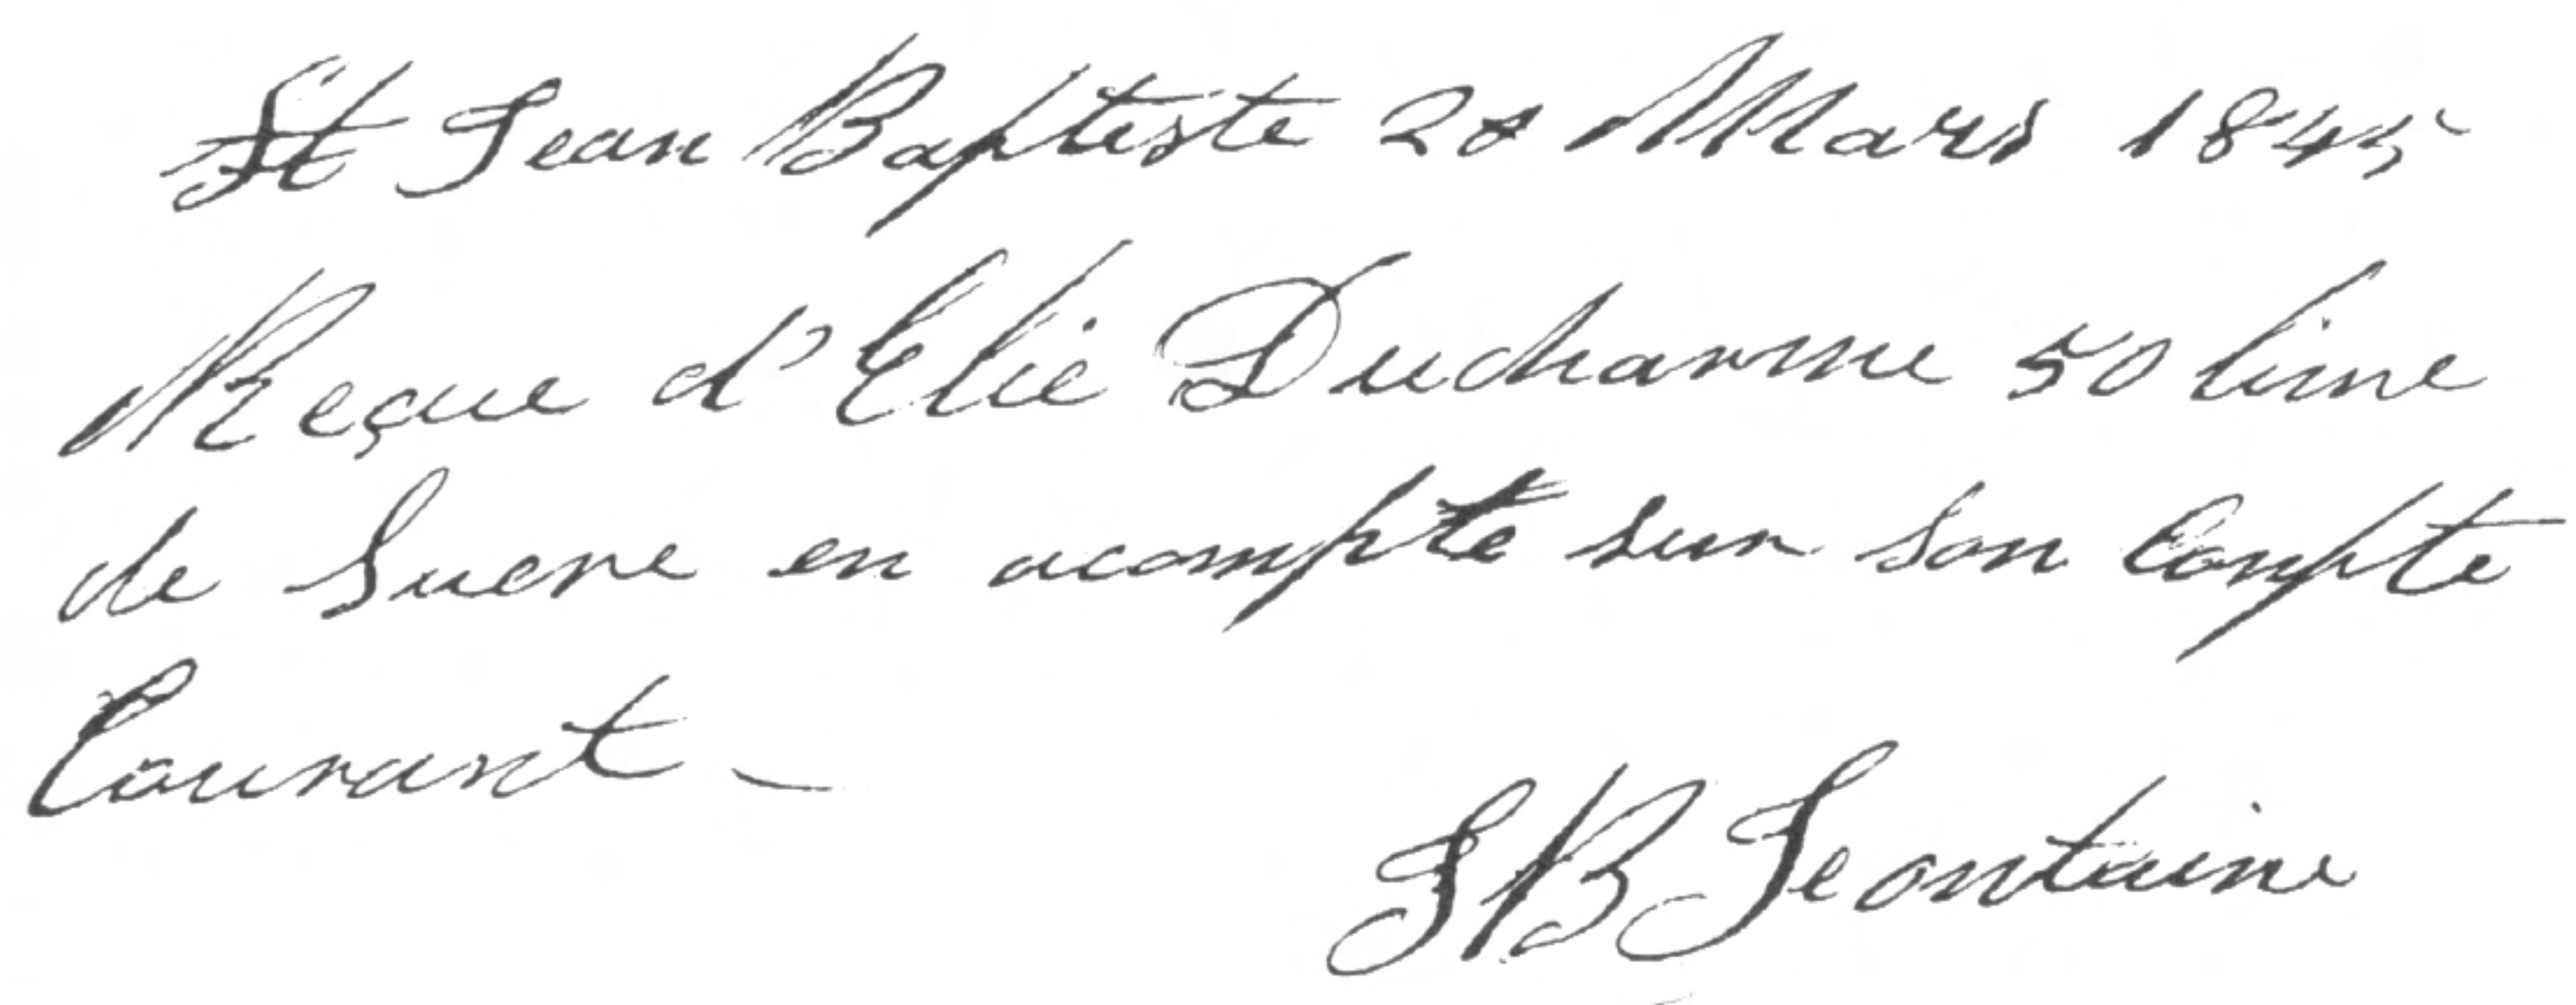 St Jean Bapteste 28 Mars 1845
Reçue d'Elie Ducharme 50 livre
de Sucre en acompte sur son Compte
Courant -
JB Jeontaine